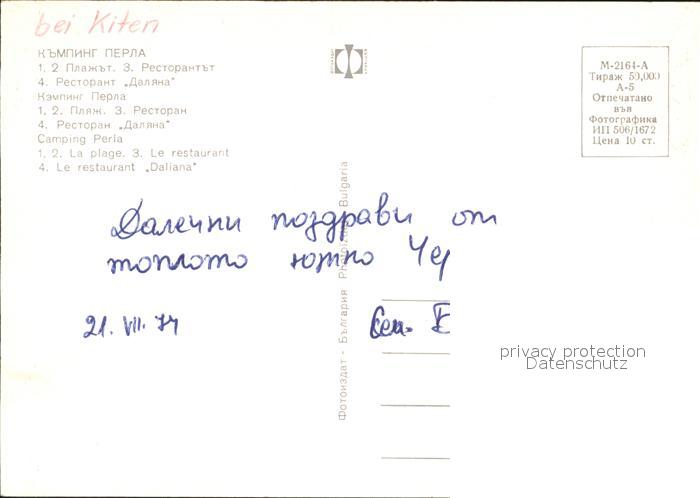 bei Kiten
КЪМПИНГ ПЕРЛА
1, 2 Плажът. 3. Ресторантът
4. Ресторант „Даляна"
Кэмпинг Перла
1, 2. Пляж. 3. Ресторан
4. Ресторан „Даляна"
Camping Perla
1, 2. La plage. 3. Le restaurant
4. Le restaurant „Daliana"
М-2164-А
Тираж 50,000
А-5
Отпечатано
във
Фотографика
ИП 506/1672
Цена 10 ст.
Далечни поздрави от
топлото южно Чер
21. VII. 74
Сем.
Фотоиздат - България Photoizdat Bulgaria
privacy protection
Datenschutz